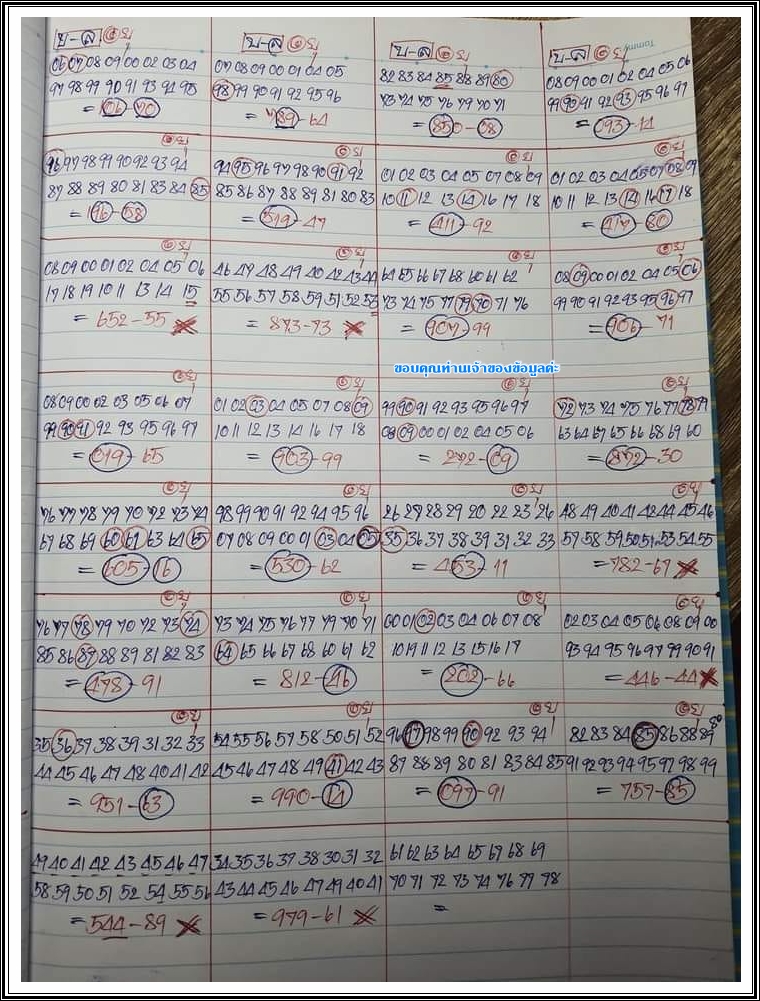 บ-ล
06 07 08 09 00 02 03 04
97 98 99 90 91 93 94 95
= 106 70
บ-ล
07 08 09 00 01 04 05
98 99 90 91 92 95 96
= 789-64
บ-ล
82 83 84 85 88 89 80
73 74 75 76 79 70 71
= 850-08
บ-ล
Tommy
08 09 00 01 02 04 05 06
99 90 91 92 93 95 96 97
= 093-14
96 97 98 99 90 92 93 94
87 88 89 80 81 83 84 85
= 196-58
94 95 96 97 98 90 91 92
85 86 87 88 89 81 80 83
= 519-47
01 02 03 04 05 07 08 09
10 11 12 13 14 16 17 18
= 411-92
01 02 03 04 05 07 08 09
10 11 12 13 14 16 17 18
= 417-80
08 09 00 01 02 04 05 06
17 18 19 10 11 13 14 15
= 652-55
46 47 48 49 40 42 43 44
55 56 57 58 59 51 52 53
= 873-73
64 65 66 67 68 60 61 62
73 74 75 77 79 70 71 76
= 907-99
08 09 00 01 02 04 05 06
99 90 91 92 93 95 96 97
= 906-71
ขอบคุณท่านเจ้าของข้อมูลค่ะ
08 09 00 02 03 05 06 07
99 90 91 92 93 95 96 97
= 019-65
01 02 03 04 05 07 08 09
10 11 12 13 14 16 17 18
= 903-99
99 90 91 92 93 95 96 97
08 09 00 01 02 04 05 06
= 272-09
72 73 74 75 76 77 78 79
63 64 67 65 66 68 69 60
= 872-30
76 77 78 79 70 72 73 74
67 68 69 60 61 63 64 65
= 605-16
98 99 90 91 92 94 95 96
07 08 09 00 01 03 04 05
= 530-62
26 27 28 29 20 22 23 26
35 36 37 38 39 31 32 33
= 453-11
48 49 40 41 42 44 45 46
57 58 59 50 51 53 54 55
= 782-67
76 77 78 79 70 72 73 74
85 86 87 88 89 81 82 83
= 478-91
73 74 75 76 77 79 70 71
64 65 66 67 68 60 61 62
= 812-46
00 01 02 03 04 06 07 08
10 19 11 12 13 15 16 17
= 202-66
02 03 04 05 06 08 09 00
93 94 95 96 97 99 90 91
= 446-44
35 36 37 38 39 31 32 33
44 45 46 47 48 40 41 42
= 951-63
54 55 56 57 58 50 51 52
45 46 47 48 49 41 42 43
= 990-14
96 97 98 99 90 92 93 94
87 88 89 80 81 83 84 85
= 097-91
82 83 84 85 86 88 89
91 92 93 94 95 97 98 99
= 757-85
49 40 41 42 43 45 46 47
58 59 50 51 52 54 55 56
= 544-89
34 35 36 37 38 30 31 32
43 44 45 46 47 49 40 41
= 979-61
61 62 63 64 65 67 68 69
70 71 72 73 74 76 77 78
=